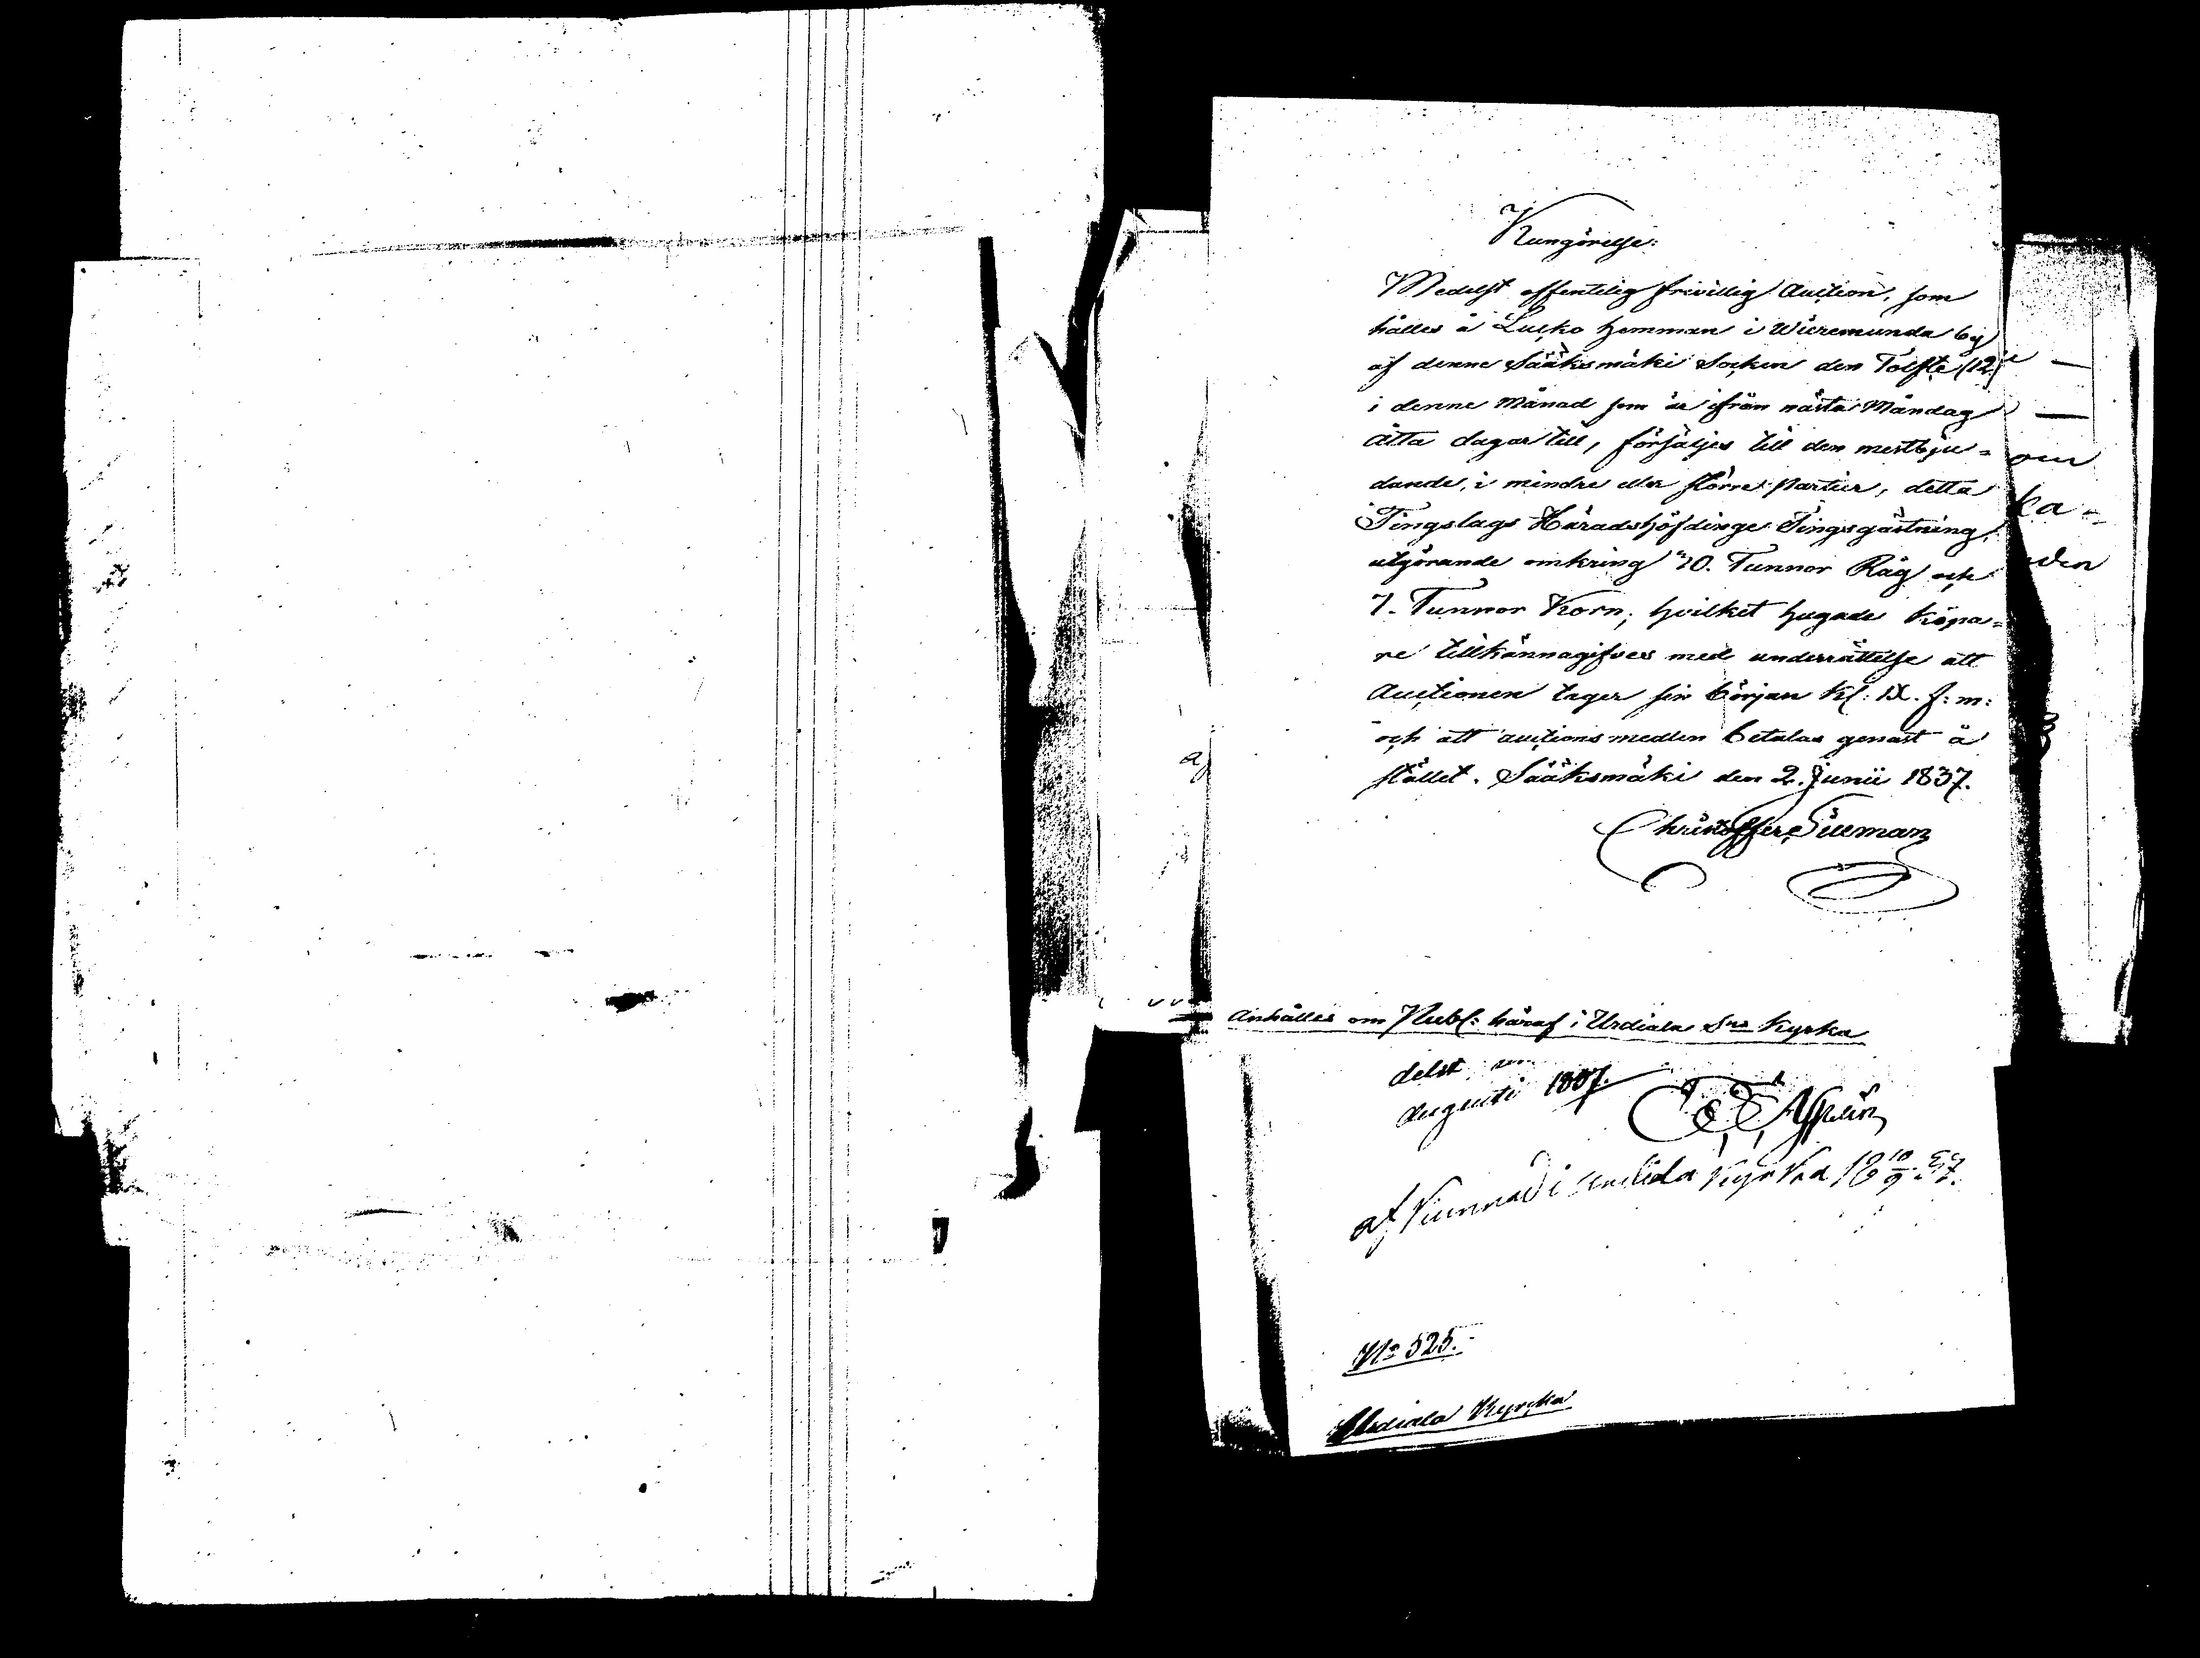 Kungörelse:
Medelst offentelig frivillig Auction, som
hålles å Lusko hemman i Wieremunda by
af denne Sääksmäki Socken den Tolfte (12)
i denne Månad som är ifrån nästa Måndag
åtta dagar till, försäljes till den mestbju-
dande, i mindre eller större partier, detta
Tingslags Häradshöfdinge Tingsgästning,
utgörande omkring 20. Tunnor Råg och
7. Tunnor Korn; hvilket hugade Köpa-
re tillkännagifves med underrättelse att
Auctionen tager sin början kl: IX. f: m:
och att auctionsmedlen betalas genast å
stället. Sääksmäki den 2. Junii 1837.
Christoffer
Anhålles om Publ: häraf i Urdiala Sns Kyrka
delst
Augusti 1837.
af Kunnad i Kyrka 18 10/9 37.
No 525.
Urdiala Kyrka